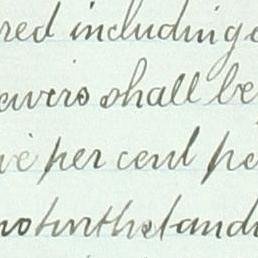 red including
shall be
per cent pe
notwithstand